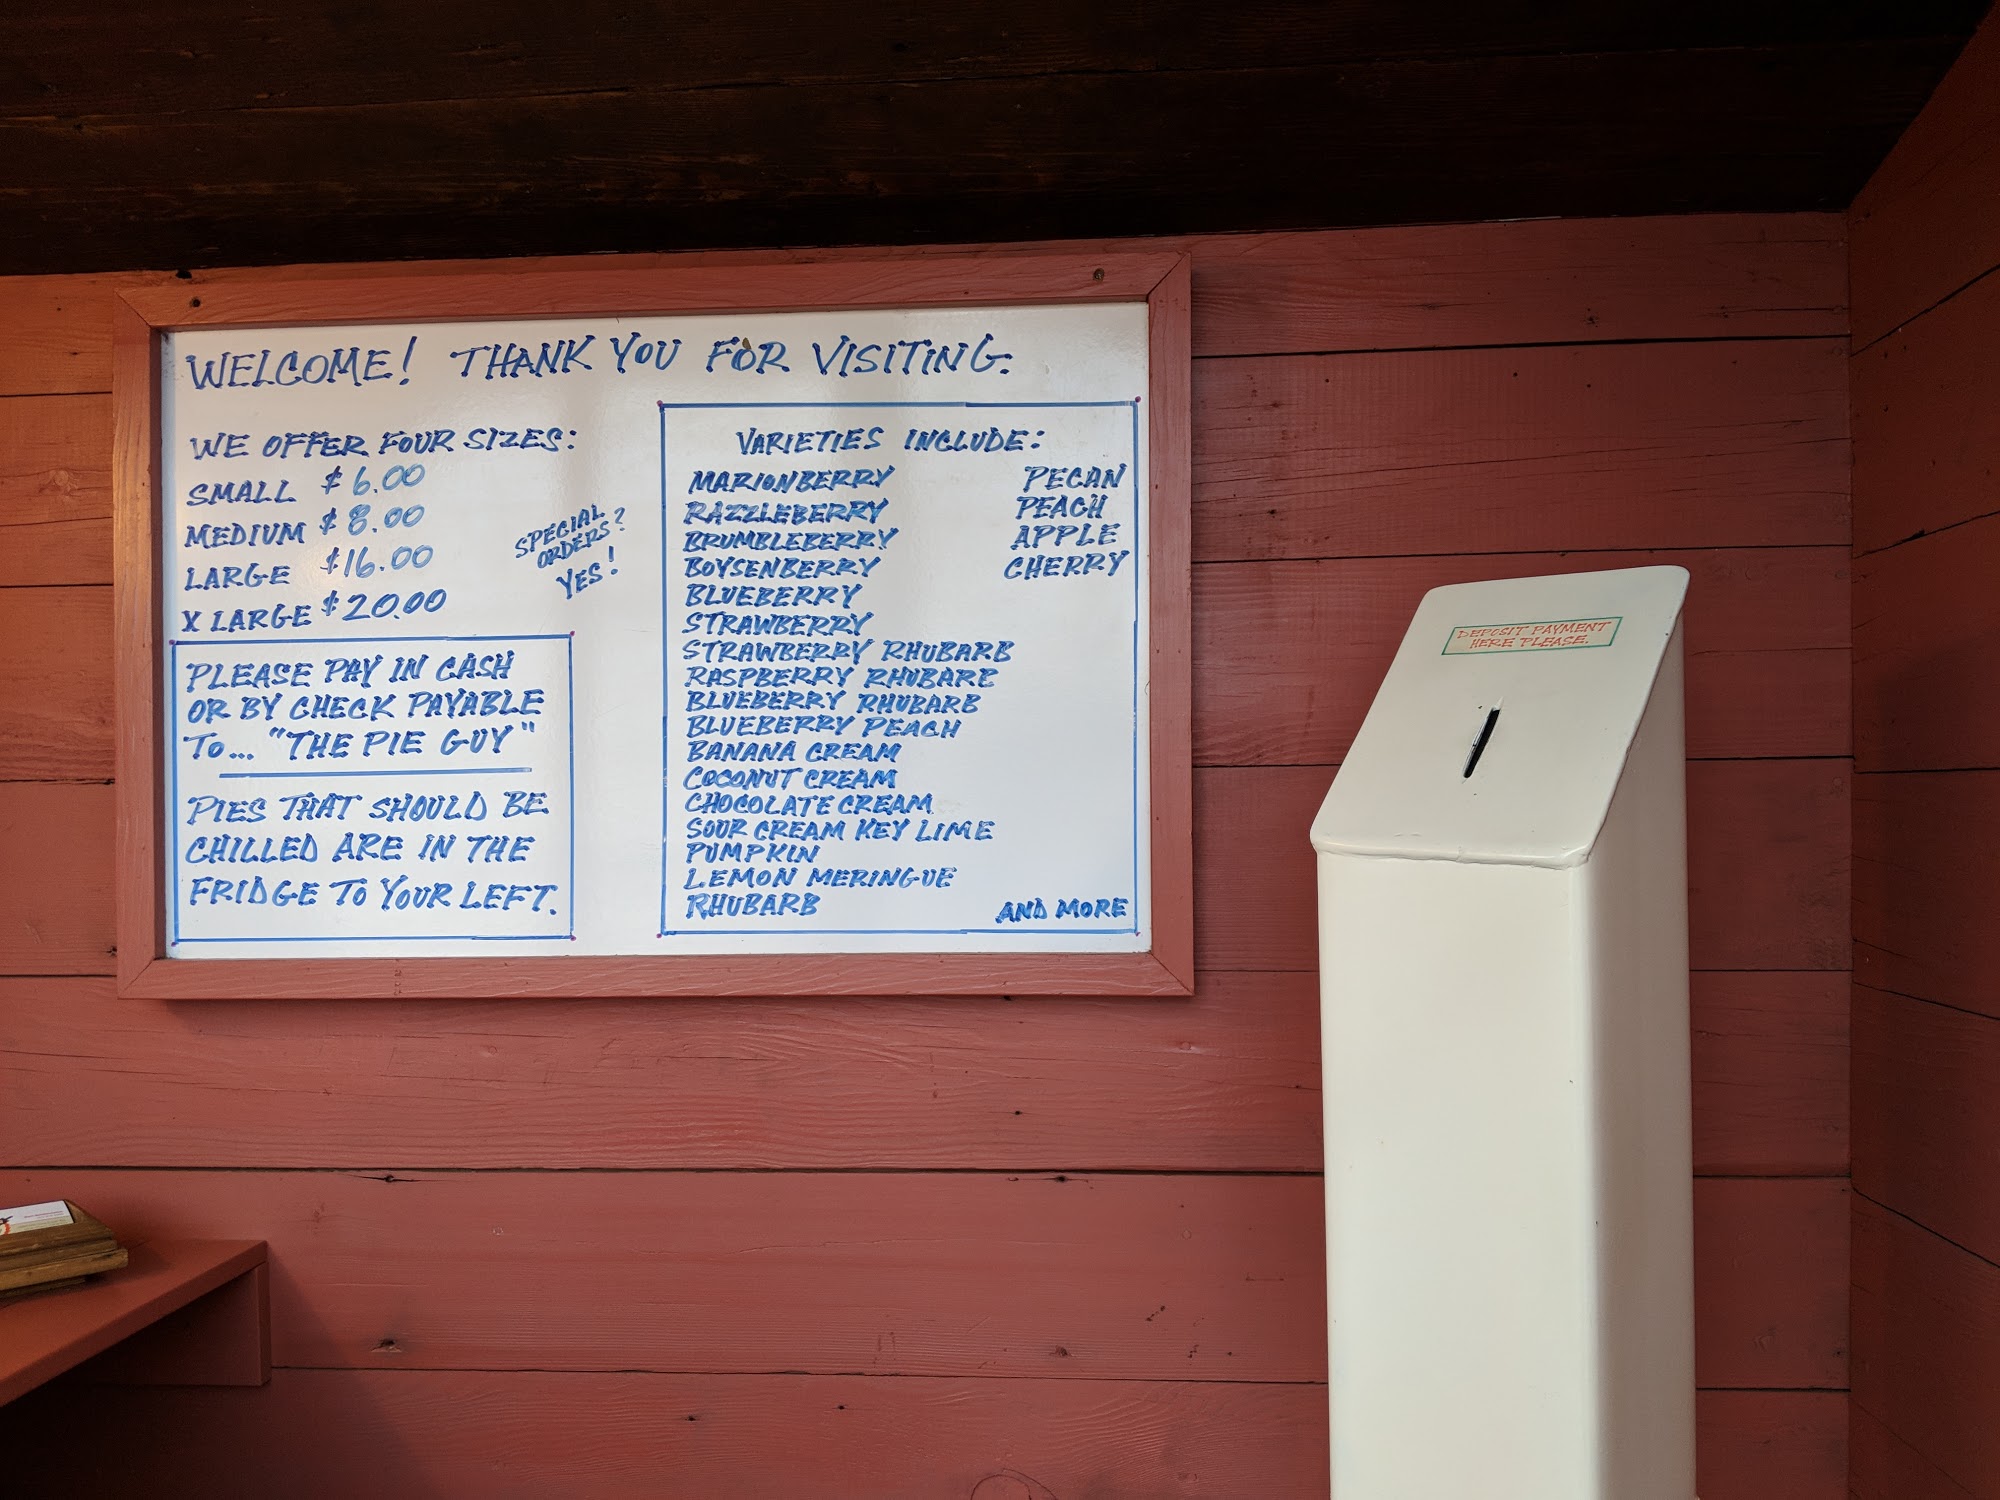 WELCOME! THANK YOU FOR VISITING.
WE OFFER FOUR SIZES:
SMALL $6.00
MEDIUM $8.00
LARGE $16.00
X LARGE $20.00
SPECIAL
ORDERS?
YES!
PLEASE PAY IN CASH
OR BY CHECK PAYABLE
TO... "THE PIE GUY"
PIES THAT SHOULD BE
CHILLED ARE IN THE
FRIDGE TO YOUR LEFT.
VARIETIES INCLUDE:
MARIONBERRY
RAZZLEBERRY
BRUMBLEBERRY
BOYSENBERRY
BLUEBERRY
STRAWBERRY
STRAWBERRY RHUBARB
RASPBERRY RHUBARB
BLUEBERRY RHUBARB
BLUEBERRY PEACH
BANANA CREAM
COCONUT CREAM
CHOCOLATE CREAM
SOUR CREAM KEY LIME
PUMPKIN
LEMON MERINGUE
RHUBARB
PECAN
PEACH
APPLE
CHERRY
AND MORE
DEPOSIT PAYMENT
HERE PLEASE.